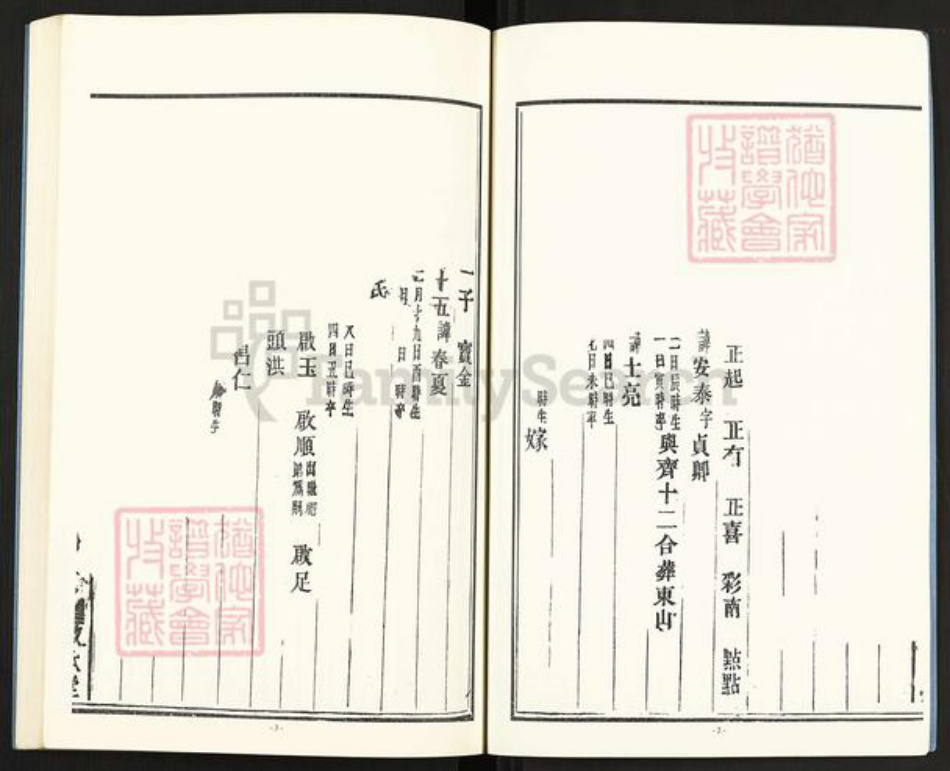 正起 正有 正喜 彩南 點點
諱安泰字貞卿
二日辰時生
一日寅時卒
與齊十二合葬東山
諱士亮
四日巳時生
七日未時卒
時生
嫁
-2-
一子 寶金
十五諱春夏
二月十九日酉時生
月 日 時卒
氏
八日巳時生
四日丑時卒
啟玉 啟順 啟足
頭洪
昌仁
時生
-3-
FamilySearch
譜學會
收藏
譜學會
收藏